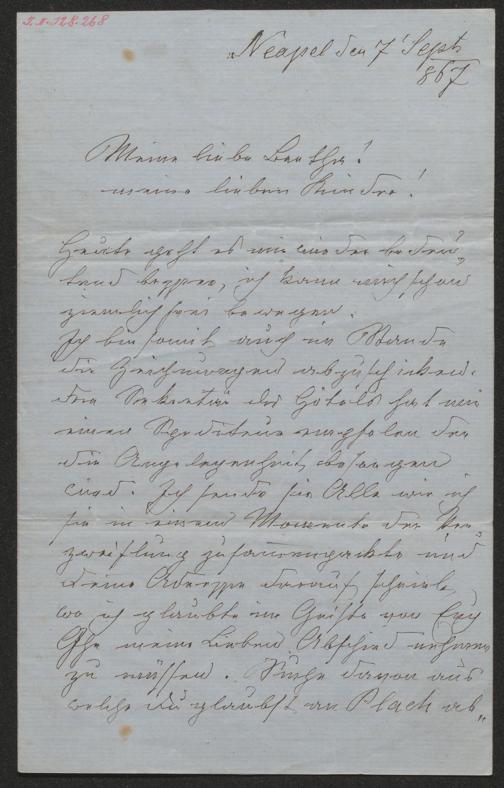 I.N. 128.268
Neapel den 7' Sept
867
Meine liebe Bertha!
meine lieben Kinder!
Heute geht es mir wieder bedeu„
tend besser, ich kann mich schon
ziemlich frei bewegen.
Ich bin somit auch im Stande
die Zeichnungen abzuschicken.
Der Sekretär des Hôtels hat mir
einen Spediteur empfolen der
die Angelegenheit besorgen
wird. Ich sende sie Alle wie ich
sie in einem Momente der Ver„
zweiflung zusammenpackte und
deine Adresse darauf schrieb,
wo ich glaubte im Geiste von Euch
meine Lieben Abschied nehmen
zu müssen. Suche davon aus
welche du glaubst an Plach ab„